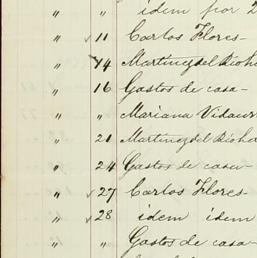 " " idem por 2
" 11 Carlos Flores-
" 14 Martinez del Rio h
" 16 Gastos de casa-
" " Mariana Vidaur
" 21 Martinez del Rio h
" 24 Gastos de casa-
" 27 Carlos Flores-
" 28 idem idem
" " Gastos de casa-